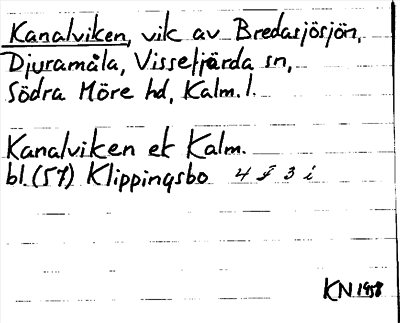 Kanalviken, vik av Bredasjösjön,
Djuramåla, Vissefjärda sn,
Södra Möre hd, Kalm. l.
Kanalviken ek Kalm.
bl. (57) Klippingsbo 4 F 3 i
KN 1958